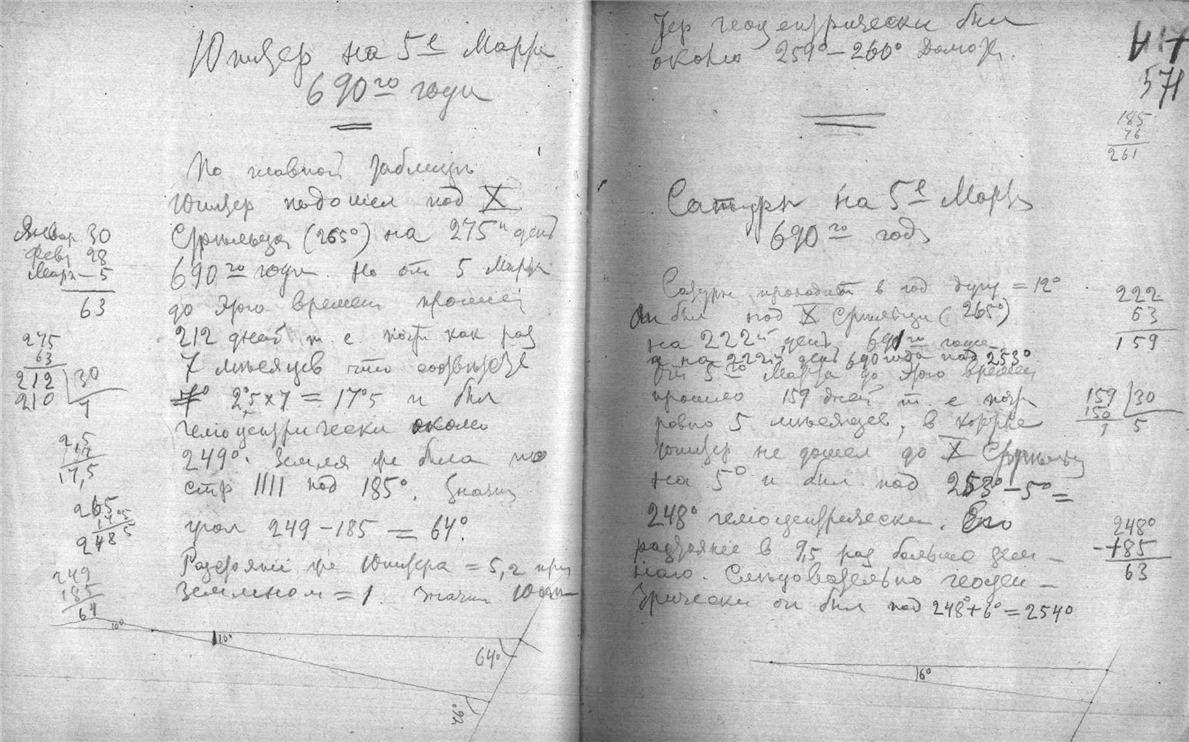 Юпитер на 5е Марта
690го года
По главной таблице
Юпитер подошел под X
Стрельца (265°) на 275й день
690го года. Но от 5 Марта
до этого времени прошло
212 дней т. е. почти как раз
7 месяцев что соответств
7° 2°,5×7 = 17°5 и был
гелиоцентрически около
249°. Земля же была по
стр IIII под 185°. Значит
угол 249 – 185 = 64°.
Разстояние же Юпитера = 5,2 при
земном = 1. Значит Юпи
Январ 30
Февр 28
Март – 5
63
275
63
212 30
210 7
2,5
17,5
265
17,5
248 5
249
185
64
10°
10°
64°
тер геоцентрически был
около 259° – 260° долготы.
571
185
76
261
Сатурн на 5е Марта
690го года
Сатурн проходит в год дугу = 12°
Он был под X Стрельца (265°)
на 222й день 691го года
а на 222й день 690 года под 253°
От 5го Марта до этого времени
прошло 159 дней т. е. почти
ровно 5 месяцев, в которые
Юпитер не дошел до X Стрельца
на 5° и был под 253° – 5° =
248° гелиоцентрически. Его
разстояние в 9,5 раз больше зем–
ного. Следовательно геоцен–
трически он был под 248° + 6° = 254°
222
63
159
159 30
150 5
9
248
– 185
63
6°